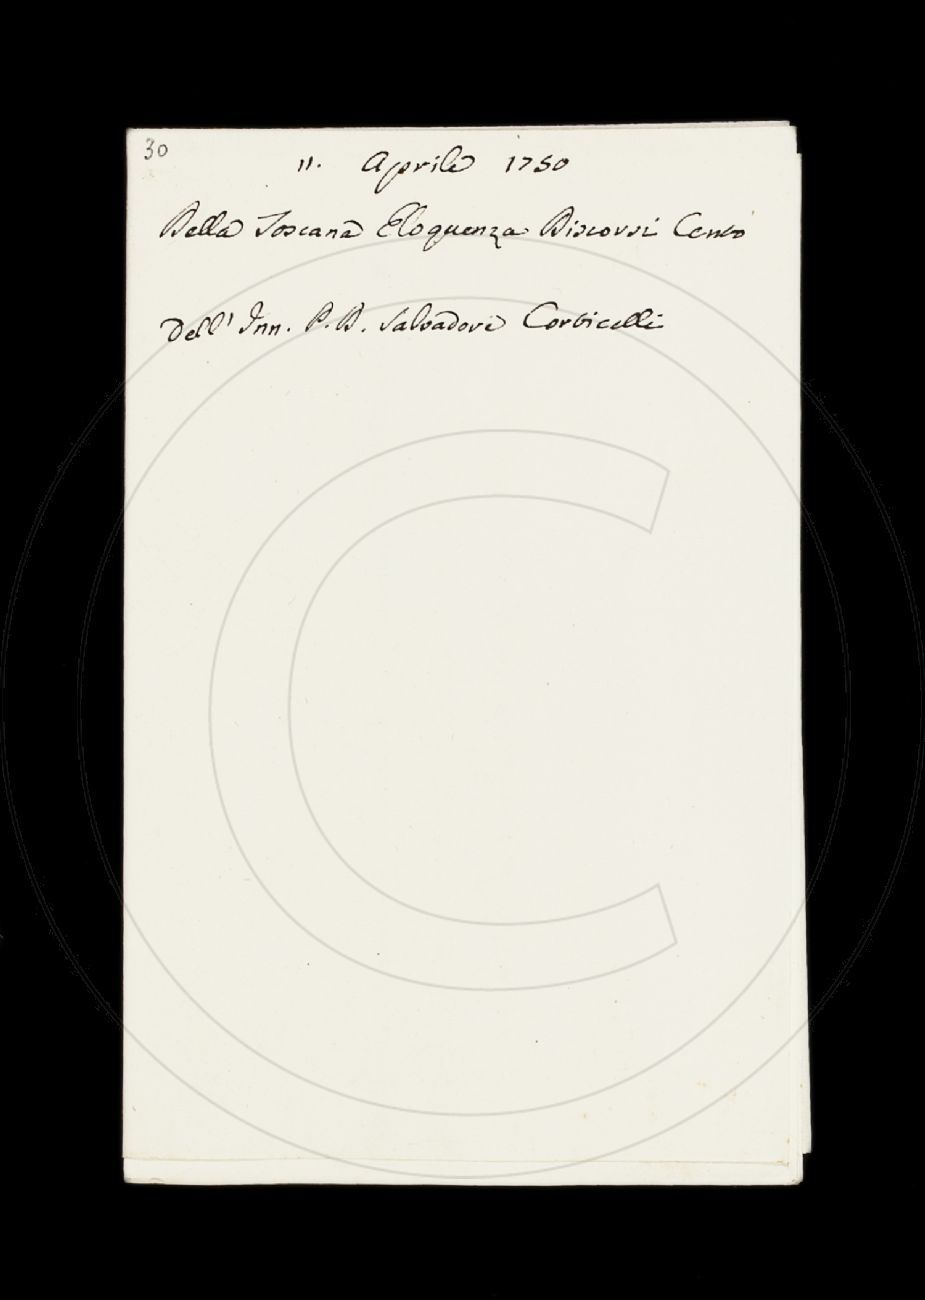 30
11. Aprile 1750
Della Toscana Eloquenza Discorsi Cento
Dell' Inn. P. D. Salvadore Corticelli